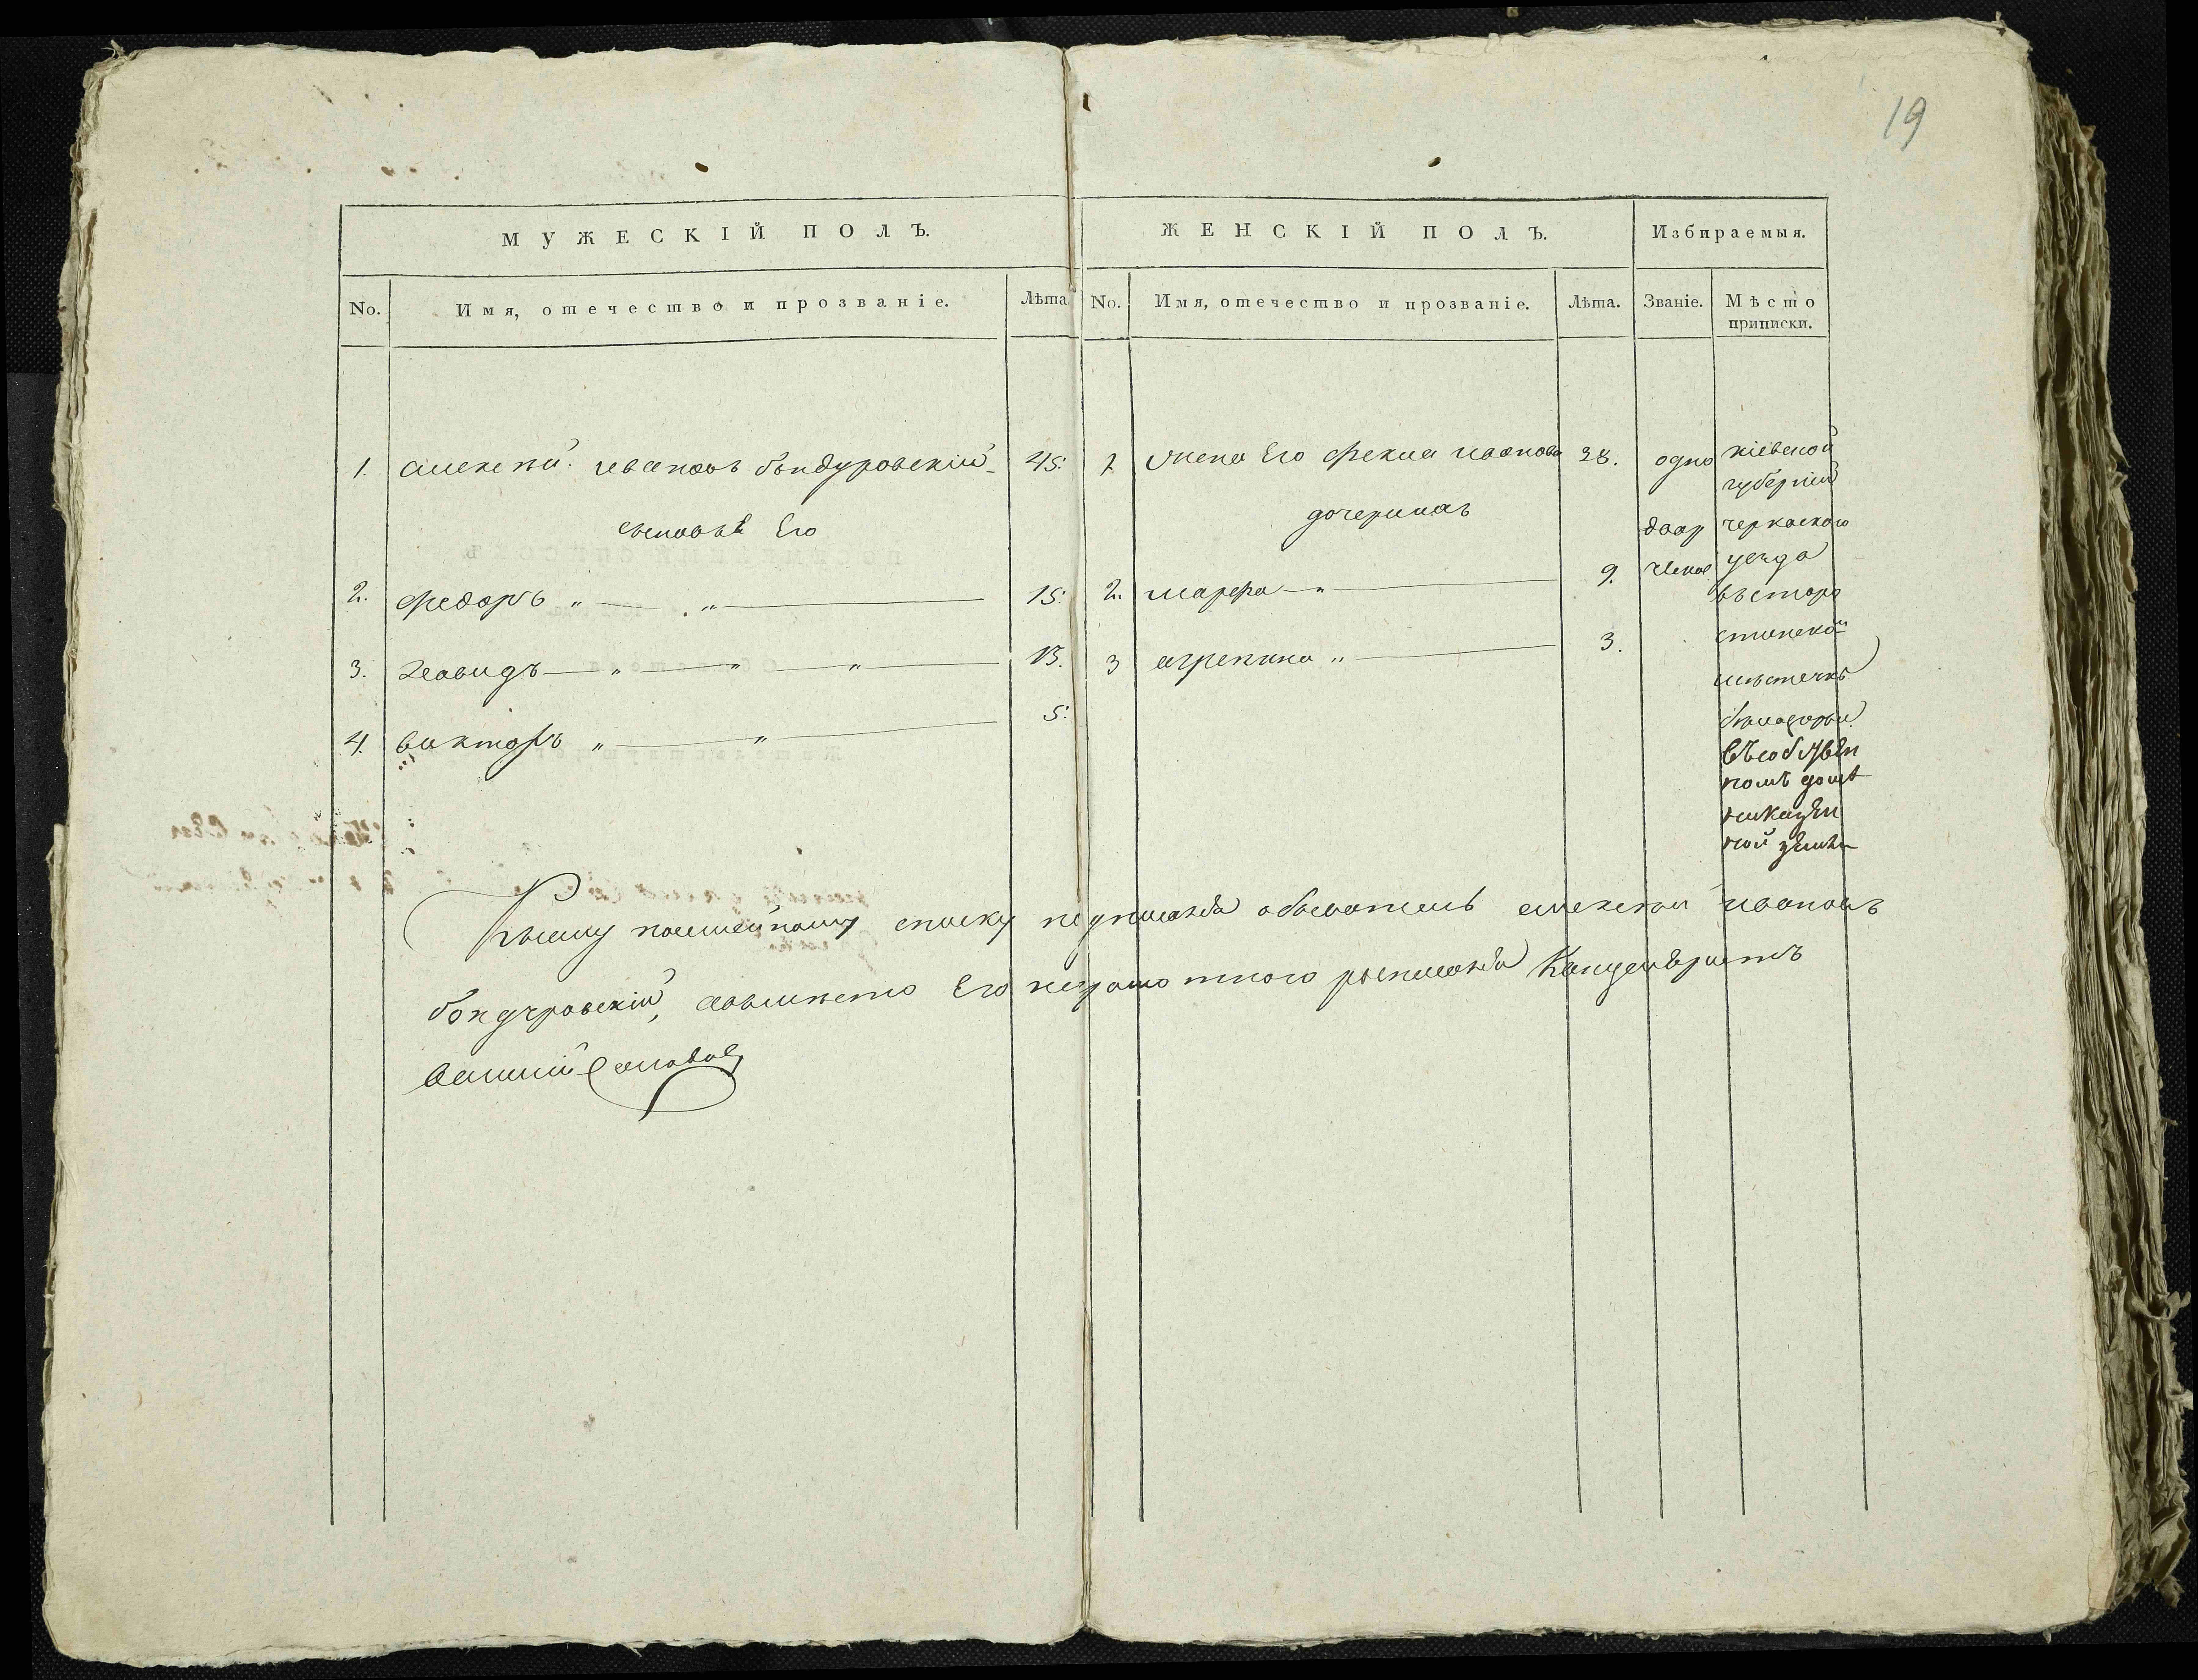 19
МУЖЕСКІЙ ПОЛЪ. ЖЕНСКІЙ ПОЛЪ. Избираемыя.
No. Имя, отечество и прозваніе. Лѣта No. Имя, отечество и прозваніе. Лѣта. Званіе. Мѣсто
приписки.
1. алексѣй ивановъ бондуровскій 45. 1. Жена Его Фекла иванова 38. одно кіевской
губерніи
сыновья Его дочери двор черкаского
уезда
2. федоръ „ „ 15. 2. марфа „ 9. въ старо
3. давидъ „ „ „ 13. 3 агрепина „ 3.
местечкѣ
4. викторъ „ „ 5.
въ собствен
номъ доме
на казен
ной земле
Ксему фамилейному списку обыватель алексей ивановъ
бондуровскій, а вместо Его неграмотного росписался Канцеляристъ